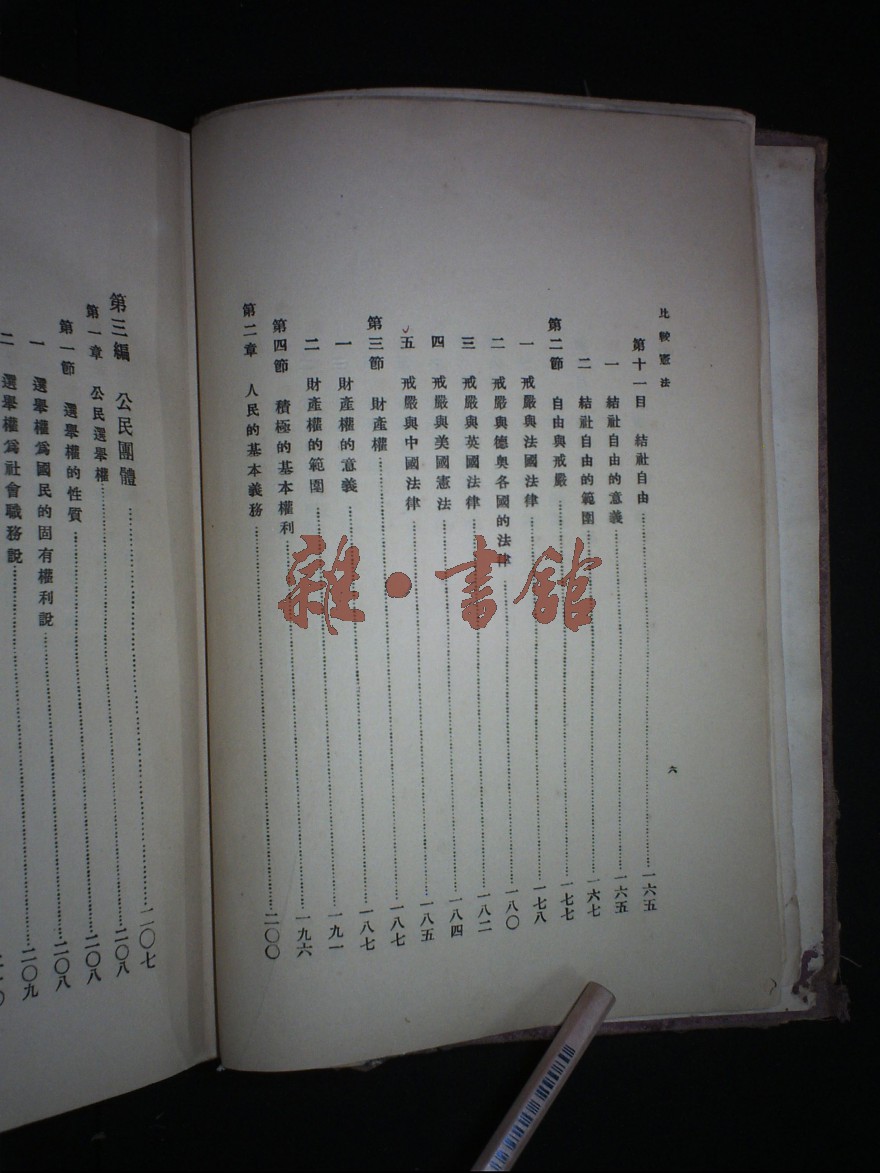 比較憲法
六
第十一目 結社自由……一六五
一 結社自由的意義……一六五
二 結社自由的範圍……一六七
第二節 自由與戒嚴……一七七
一 戒嚴與法國法律……一七八
二 戒嚴與德奧各國的法律……一八〇
三 戒嚴與英國法律……一八二
四 戒嚴與美國憲法……一八四
五 戒嚴與中國法律……一八五
第三節 財產權……一八七
一 財產權的意義……一八七
二 財產權的範圍……一九一
第四節 積極的基本權利……一九六
第二章 人民的基本義務……二〇〇
第三編 公民團體……二〇七
第一章 公民選舉權……二〇八
第一節 選舉權的性質……二〇八
一 選舉權爲國民的固有權利說……二〇九
二 選舉權爲社會職務說……
雜·書館